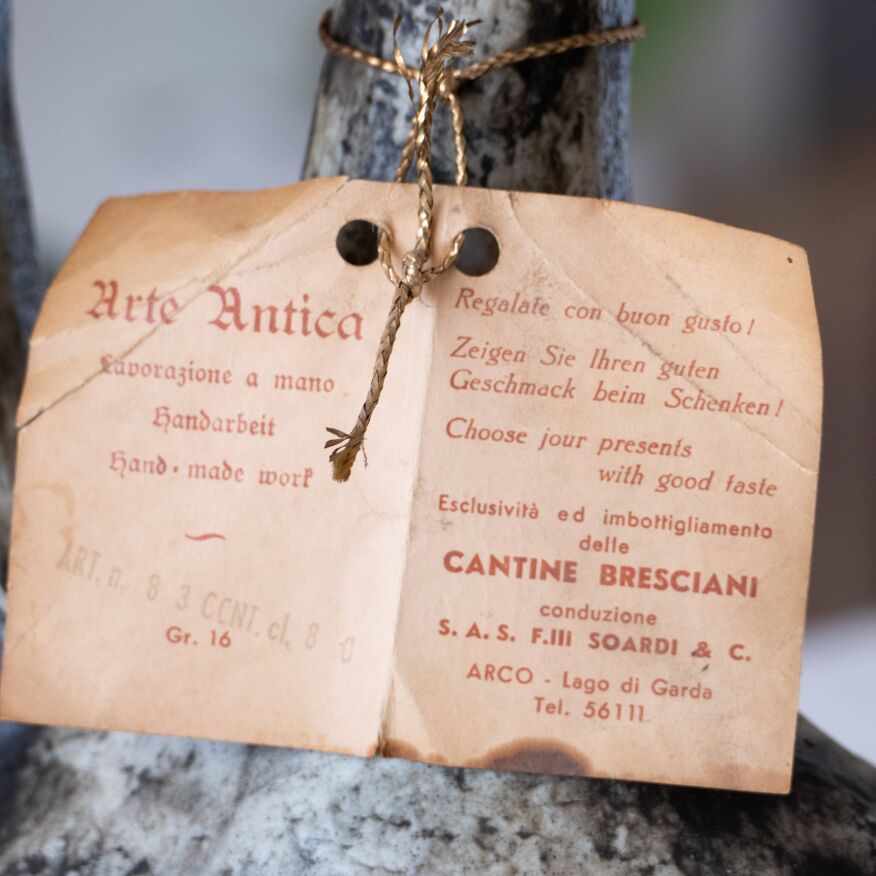 Arte Antica
Lavorazione a mano
Handarbeit
Hand-made work
ART. n. 8 3 CCNT. cl. 8 0
Gr. 16
Regalate con buon gusto!
Zeigen Sie Ihren guten
Geschmack beim Schenken!
Choose jour presents
with good taste
Esclusività ed imbottigliamento
delle
CANTINE BRESCIANI
conduzione
S. A. S. F.lli SOARDI & C.
ARCO - Lago di Garda
Tel. 56111